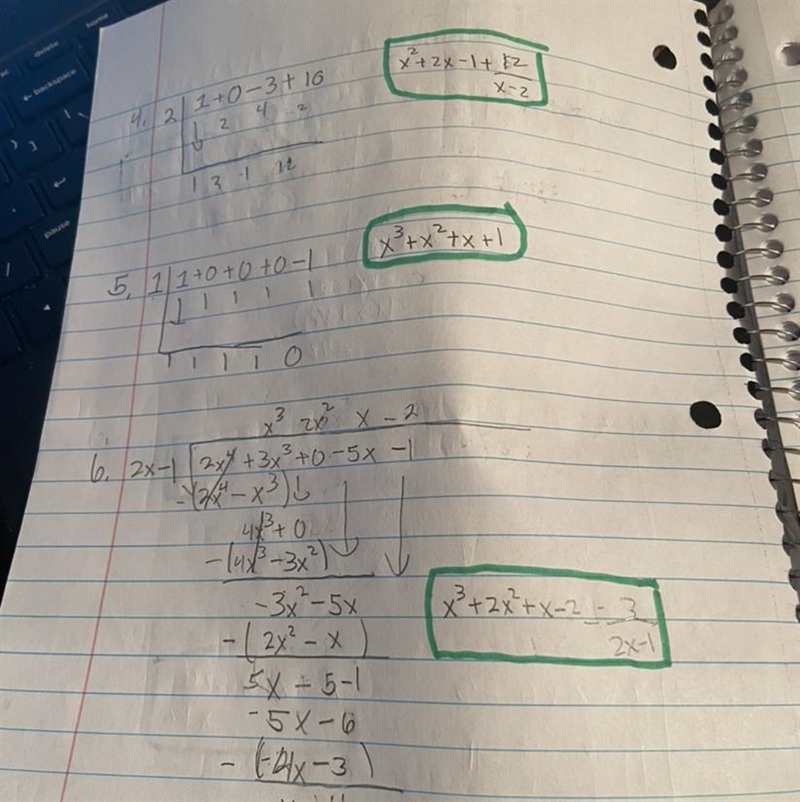 home
delete
backspace
pause
4. 2 | 1+0-3+16
↓ 2 4 -2
1 2 -1
x²+2x-1+12/x-2
5. 1 | 1+0+0+0-1
↓ 1 1 1 1
1 1 1 1 0
x³+x²+x+1
x³ 2x² x - 2
6. 2x-1 | 2x⁴+3x³+0-5x-1
-(2x⁴-x³)↓
4x³+0
-(4x³-3x²)
-3x²-5x
-(2x²-x)
5x-5-1
-5x-6
-(-4x-3)
x³+2x²+x-2-3/2x-1